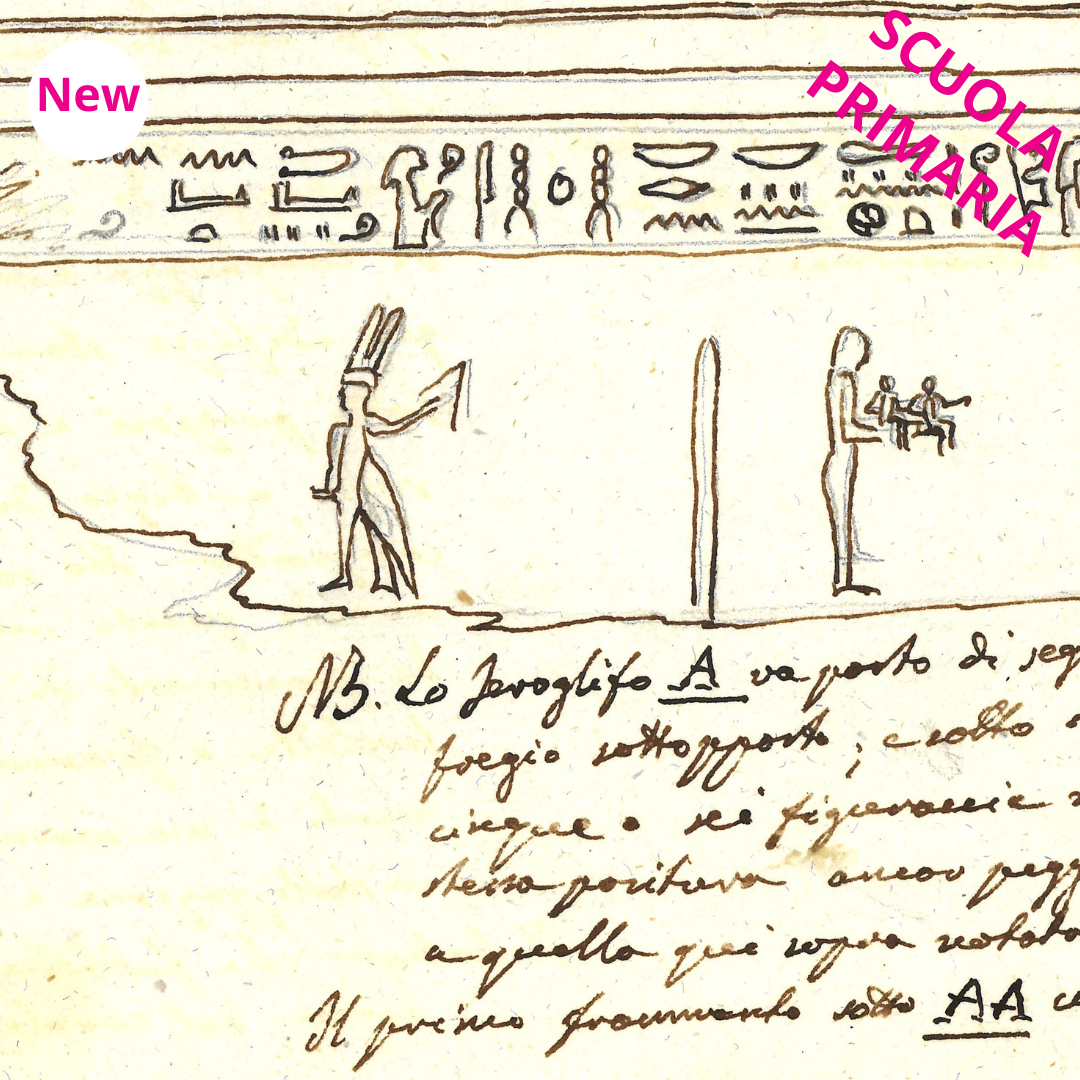 New
SCUOLA
PRIMARIA
NB. Lo Jeroglifo A va posto di seg
fregio sottopposto, e sotto
cinque o sei figuraccie
stessa positura ancor pegg
a quella qui sopra notata
Il primo frammento sotto AA